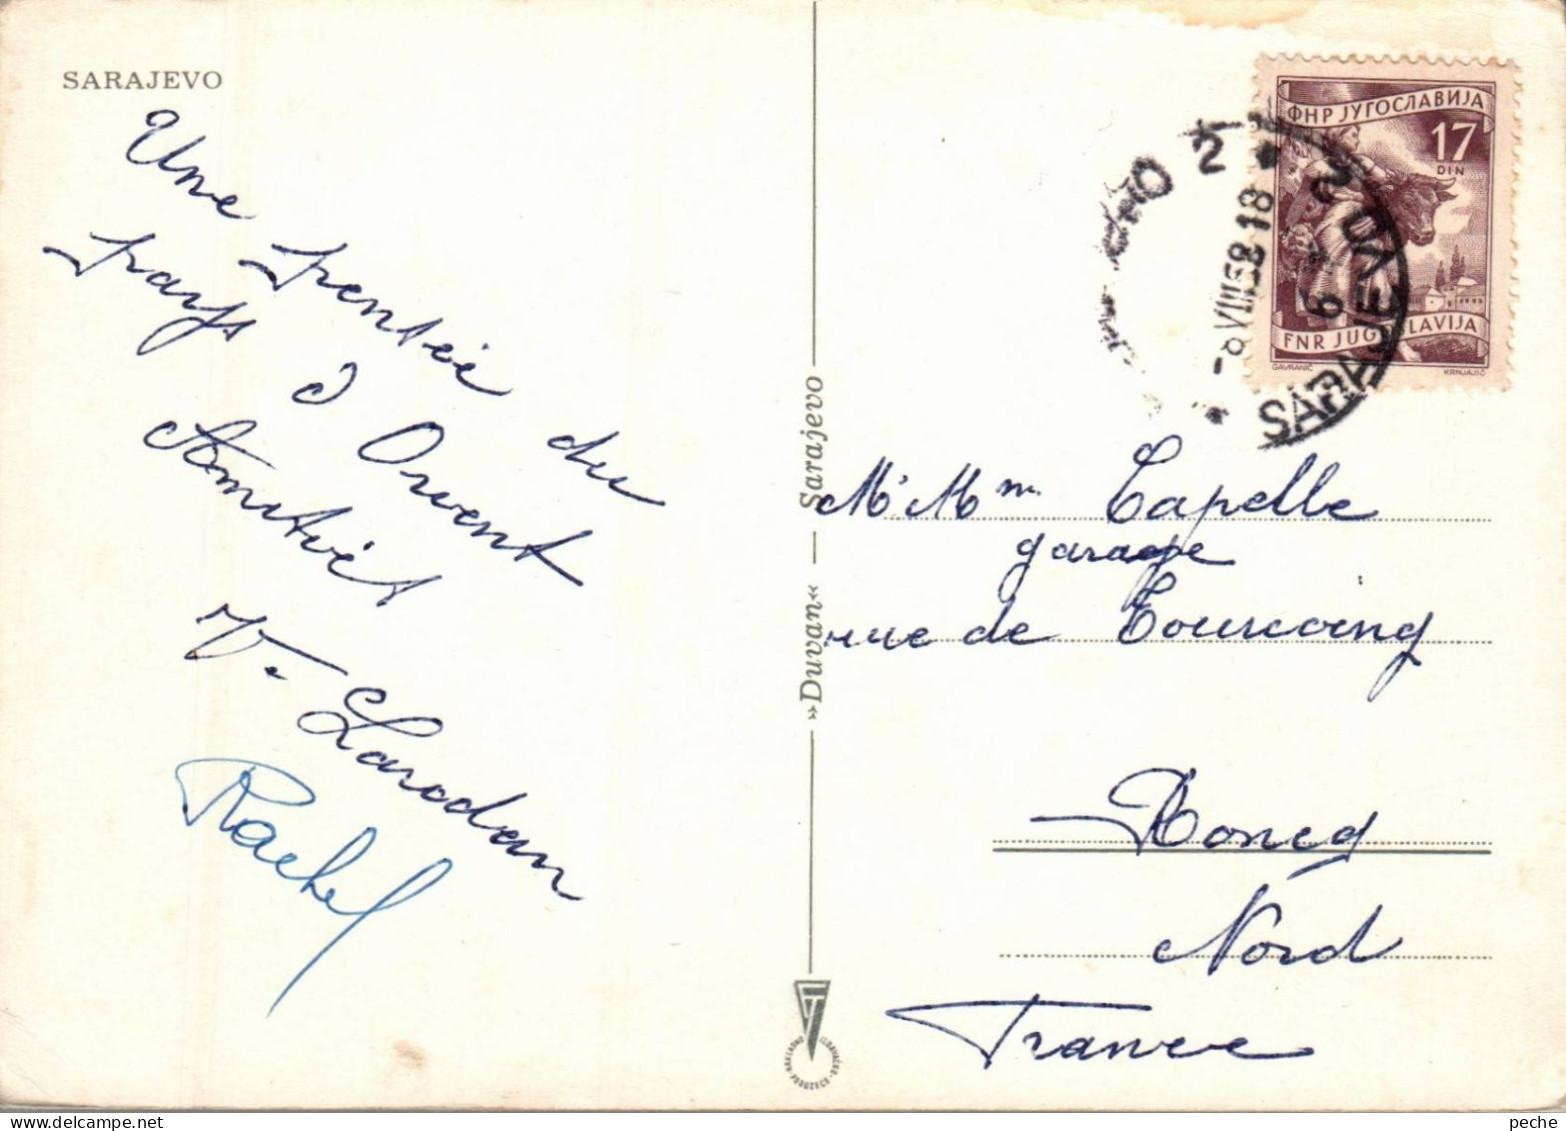 SARAJEVO
Une pensée du
pays d Orient
Amitiés
V. Larodan
Rachel
»Duvan« — Sarajevo
ФНР ЈУГОСЛАВИЈА
17
DIN
FNR JUGOSLAVIJA
GAVRANIĆ KRNJAJIĆ
SARAJEVO 2
-6 VIII 58 18
M' Mm Capelle
garage
rue de Tourcoing
Roncq
Nord
France
peche